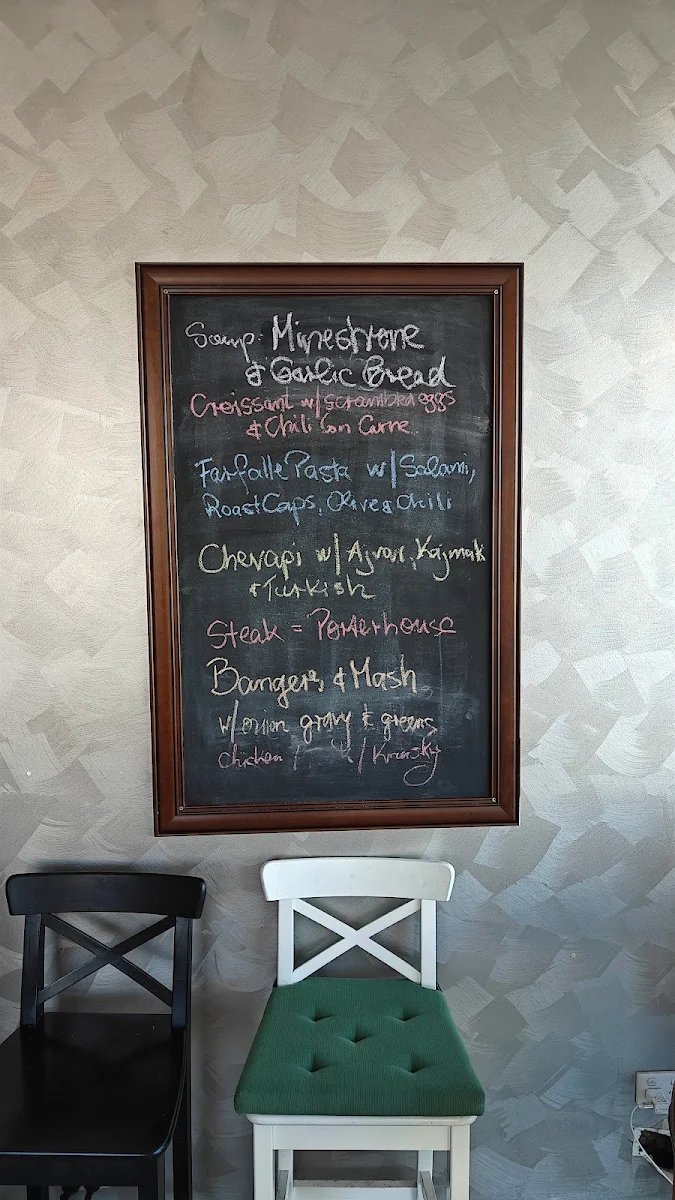 Soup: Minestrone
& Garlic Bread
Croissant w/ scrambled eggs
& Chili Con Carne
Farfalle Pasta w/ Salami,
Roast Caps, Olives Chili
Chevapi w/ Ajvar, Kajmak
& Turkish
Steak = Porterhouse
Bangers & Mash
w/ onion gravy & greens
Chicken / / Kransky